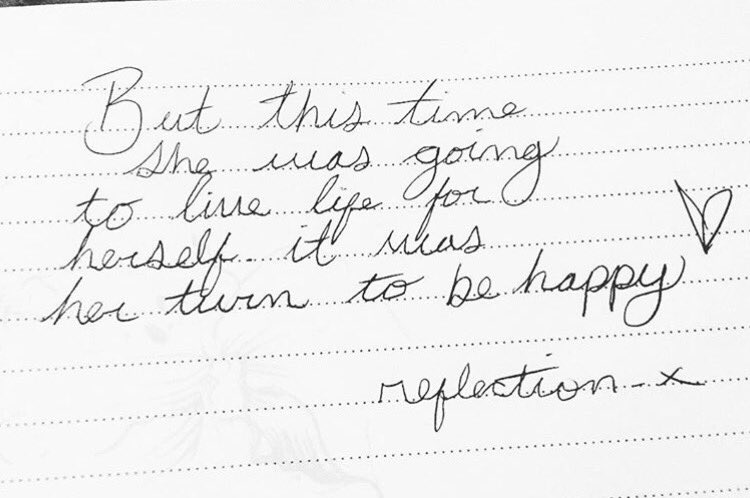 But this time
she was going
to live life for
herself. it was
her turn to be happy
reflection - x